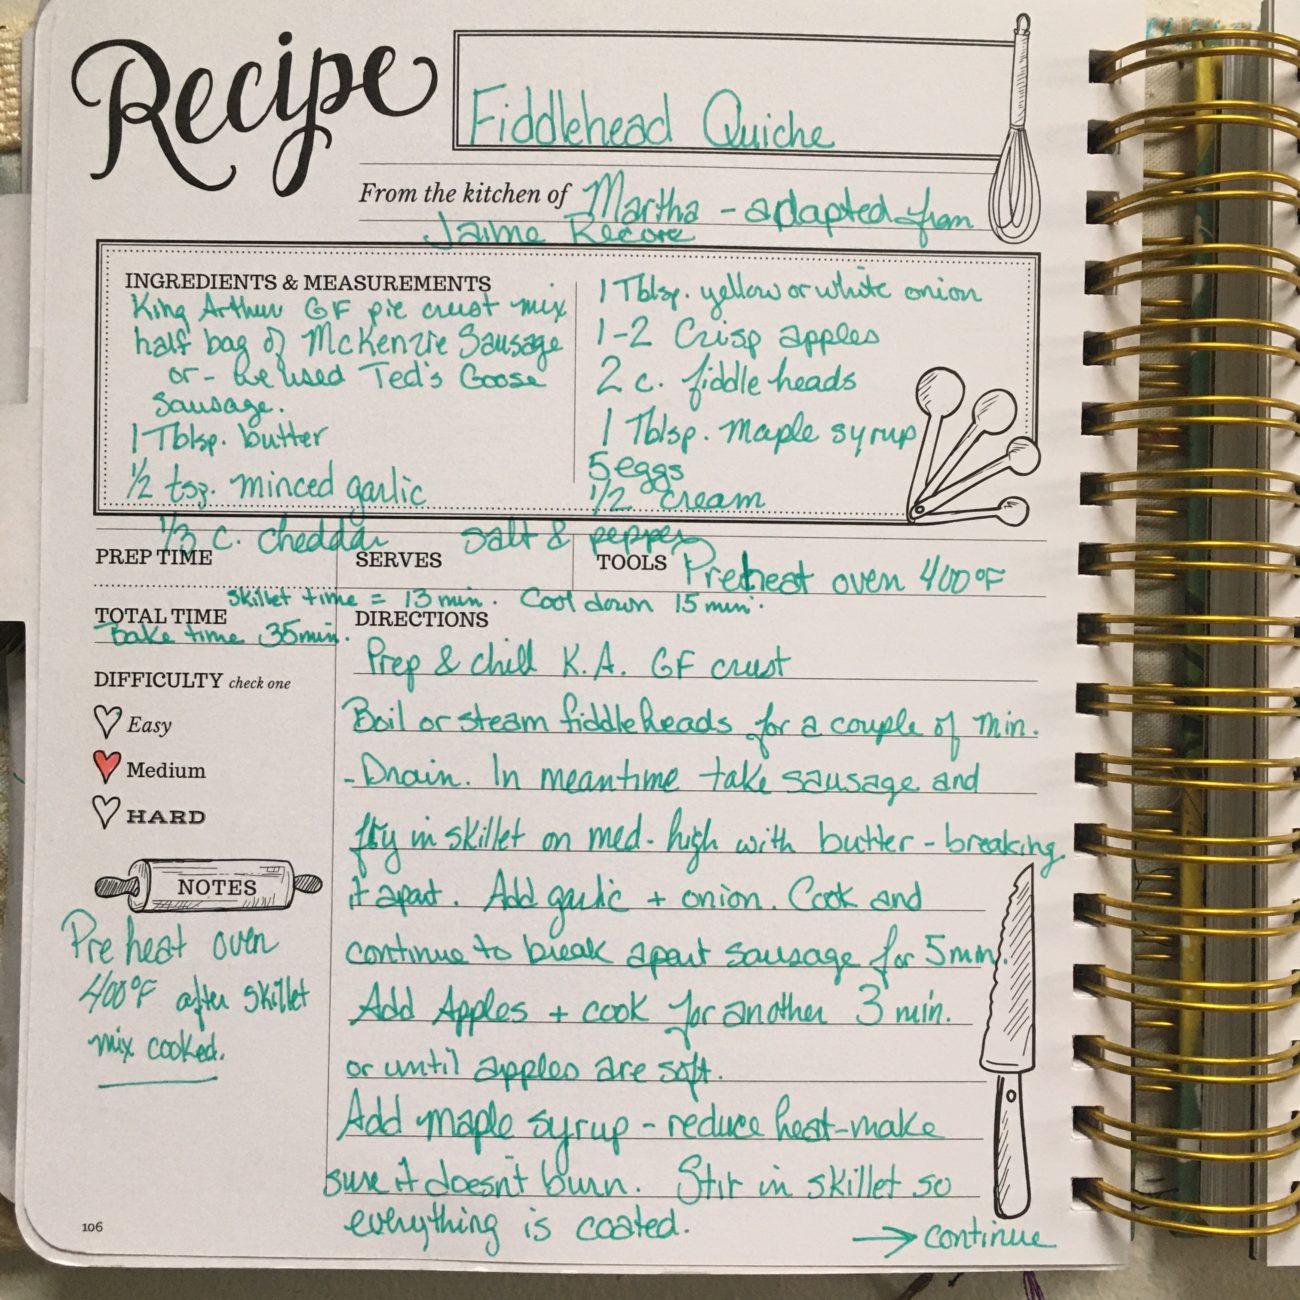 Recipe
Fiddlehead Quiche
From the kitchen of Martha - adapted from
Jaime Recore
INGREDIENTS & MEASUREMENTS
King Arthur GF pie crust mix
half bag of McKenzie Sausage
or - we used Ted's Goose
Sausage.
1 Tblsp. butter
1/2 tsp. minced garlic
1/3 c. cheddar
1 Tblsp. yellow or white onion
1-2 Crisp apples
2 c. fiddle heads
1 Tblsp. maple syrup
5 eggs
1/2 cream
salt & pepper
PREP TIME
SERVES
TOOLS Preheat oven 400°F
skillet time = 13 min. Cool down 15 min.
TOTAL TIME
Bake time 35 min.
DIFFICULTY check one
Easy
Medium
HARD
NOTES
Pre heat oven
400°F after skillet
mix cooked.
DIRECTIONS
Prep & chill K.A. GF crust
Boil or steam fiddleheads for a couple of min.
- Drain. In meantime take sausage and
fry in skillet on med-high with butter - breaking
it apart. Add garlic + onion. Cook and
continue to break apart sausage for 5 min.
Add Apples + cook for another 3 min.
or until apples are soft.
Add maple syrup - reduce heat - make
sure it doesn't burn. Stir in skillet so
everything is coated.
→ continue
106